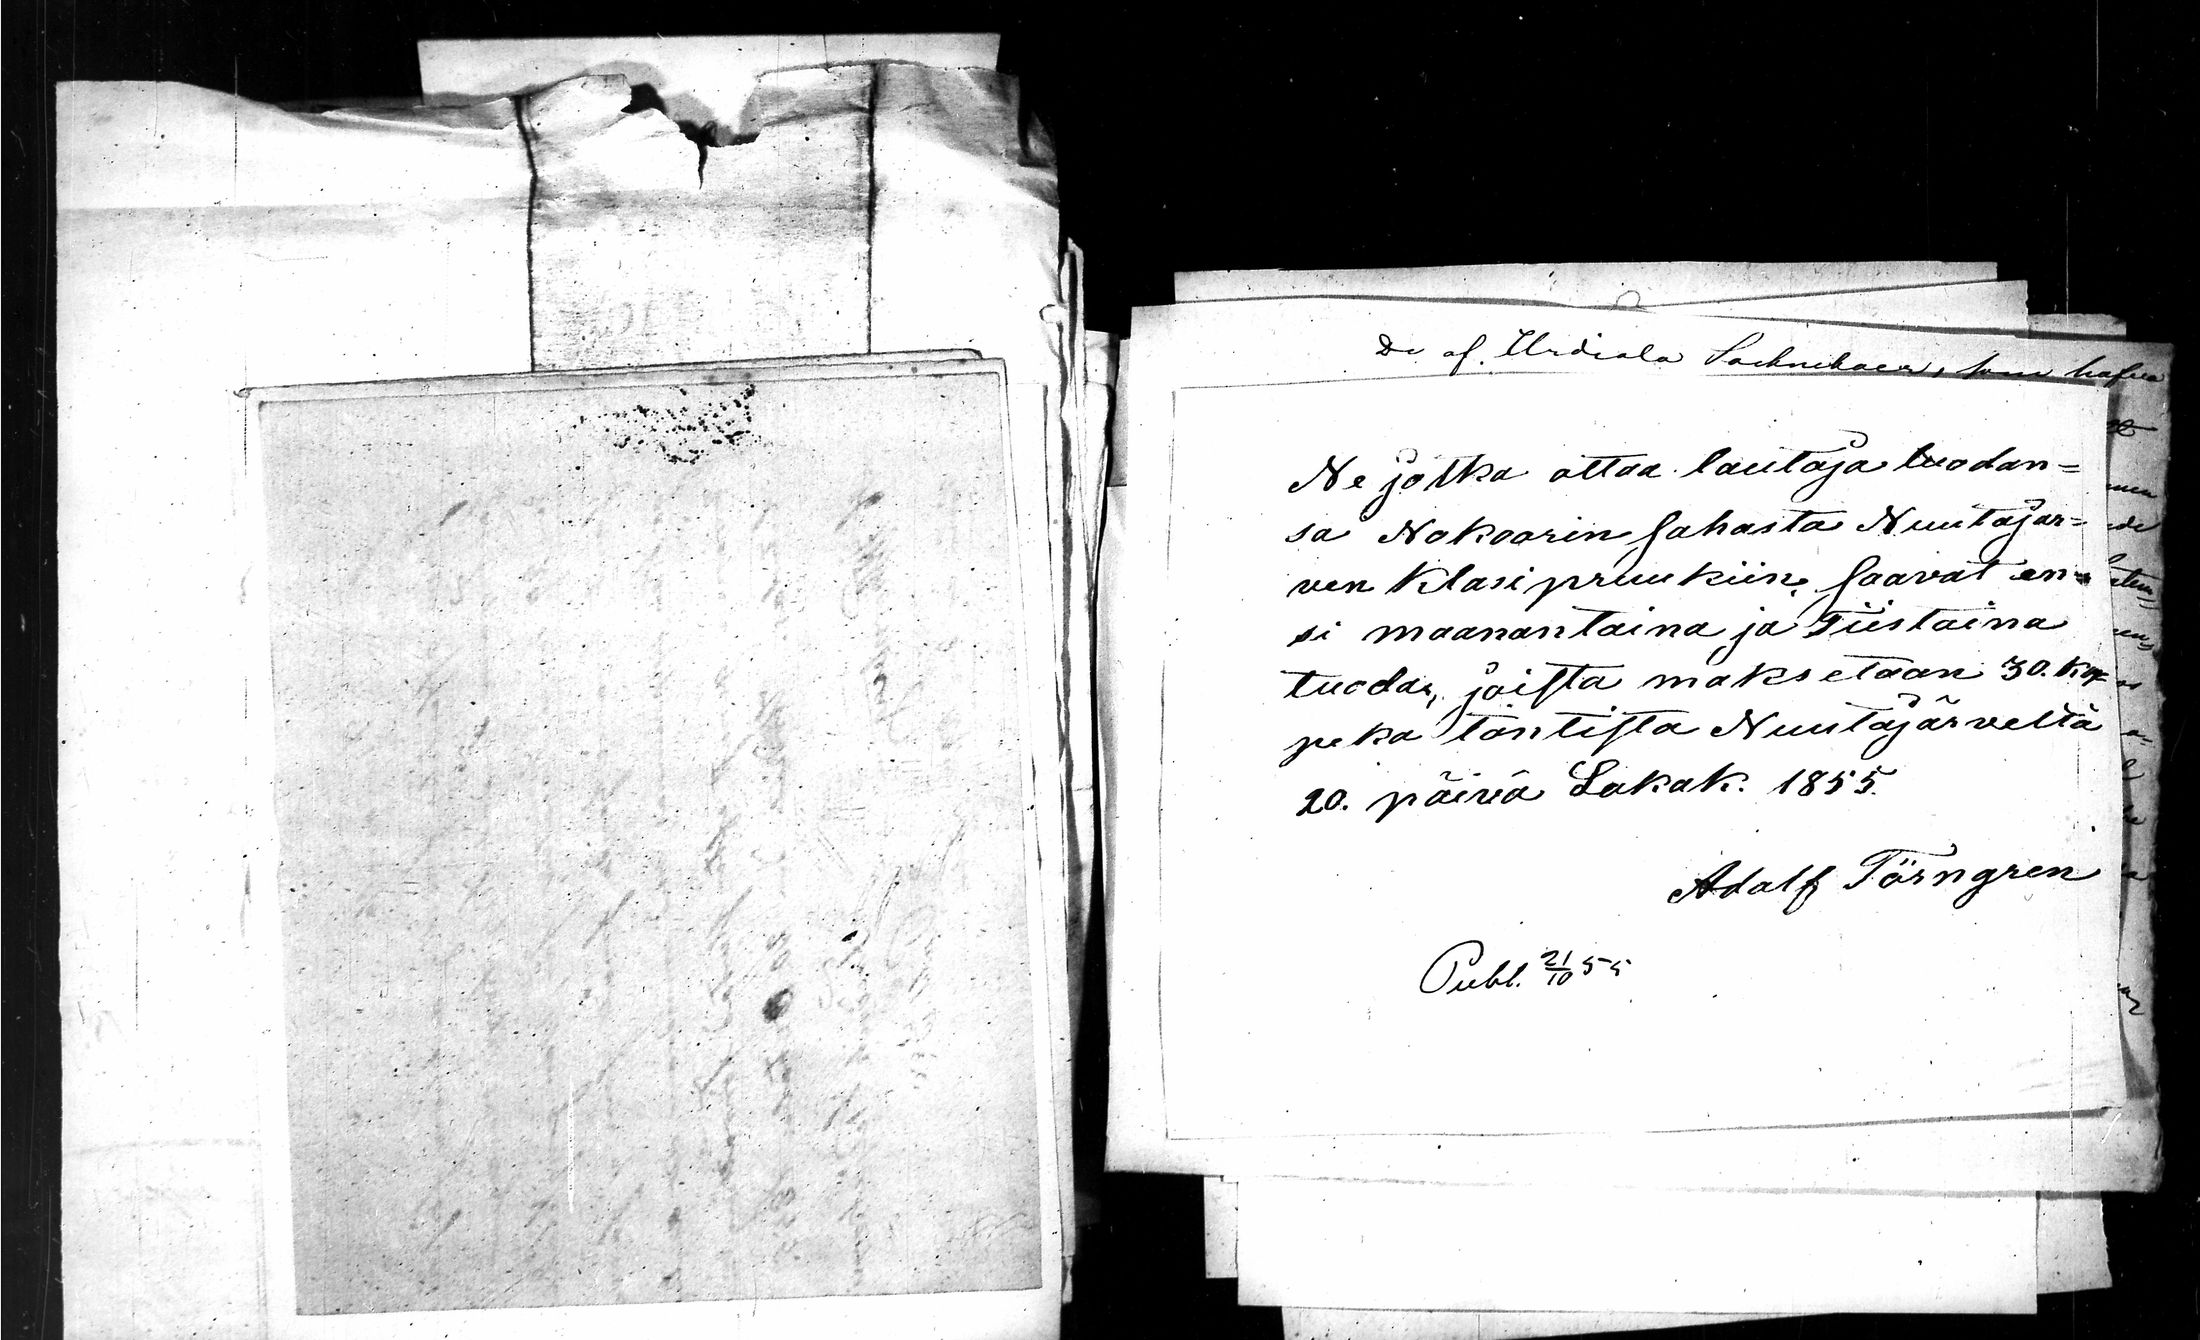 De af Urdiala Sockneboer, som hafva
Ne jotka ottaa lautoja tuodan=
sa Nokoorin sahasta Nuutajär=
ven Klasipruukiin, saavat en=
si maanantaina ja Tiistaina
tuoda, joista maksetaan 30. kop=
peka töntista Nuutajärveltä
20. päivä Lokak. 1855.
Adolf Törngren
Publ. 21/10 55